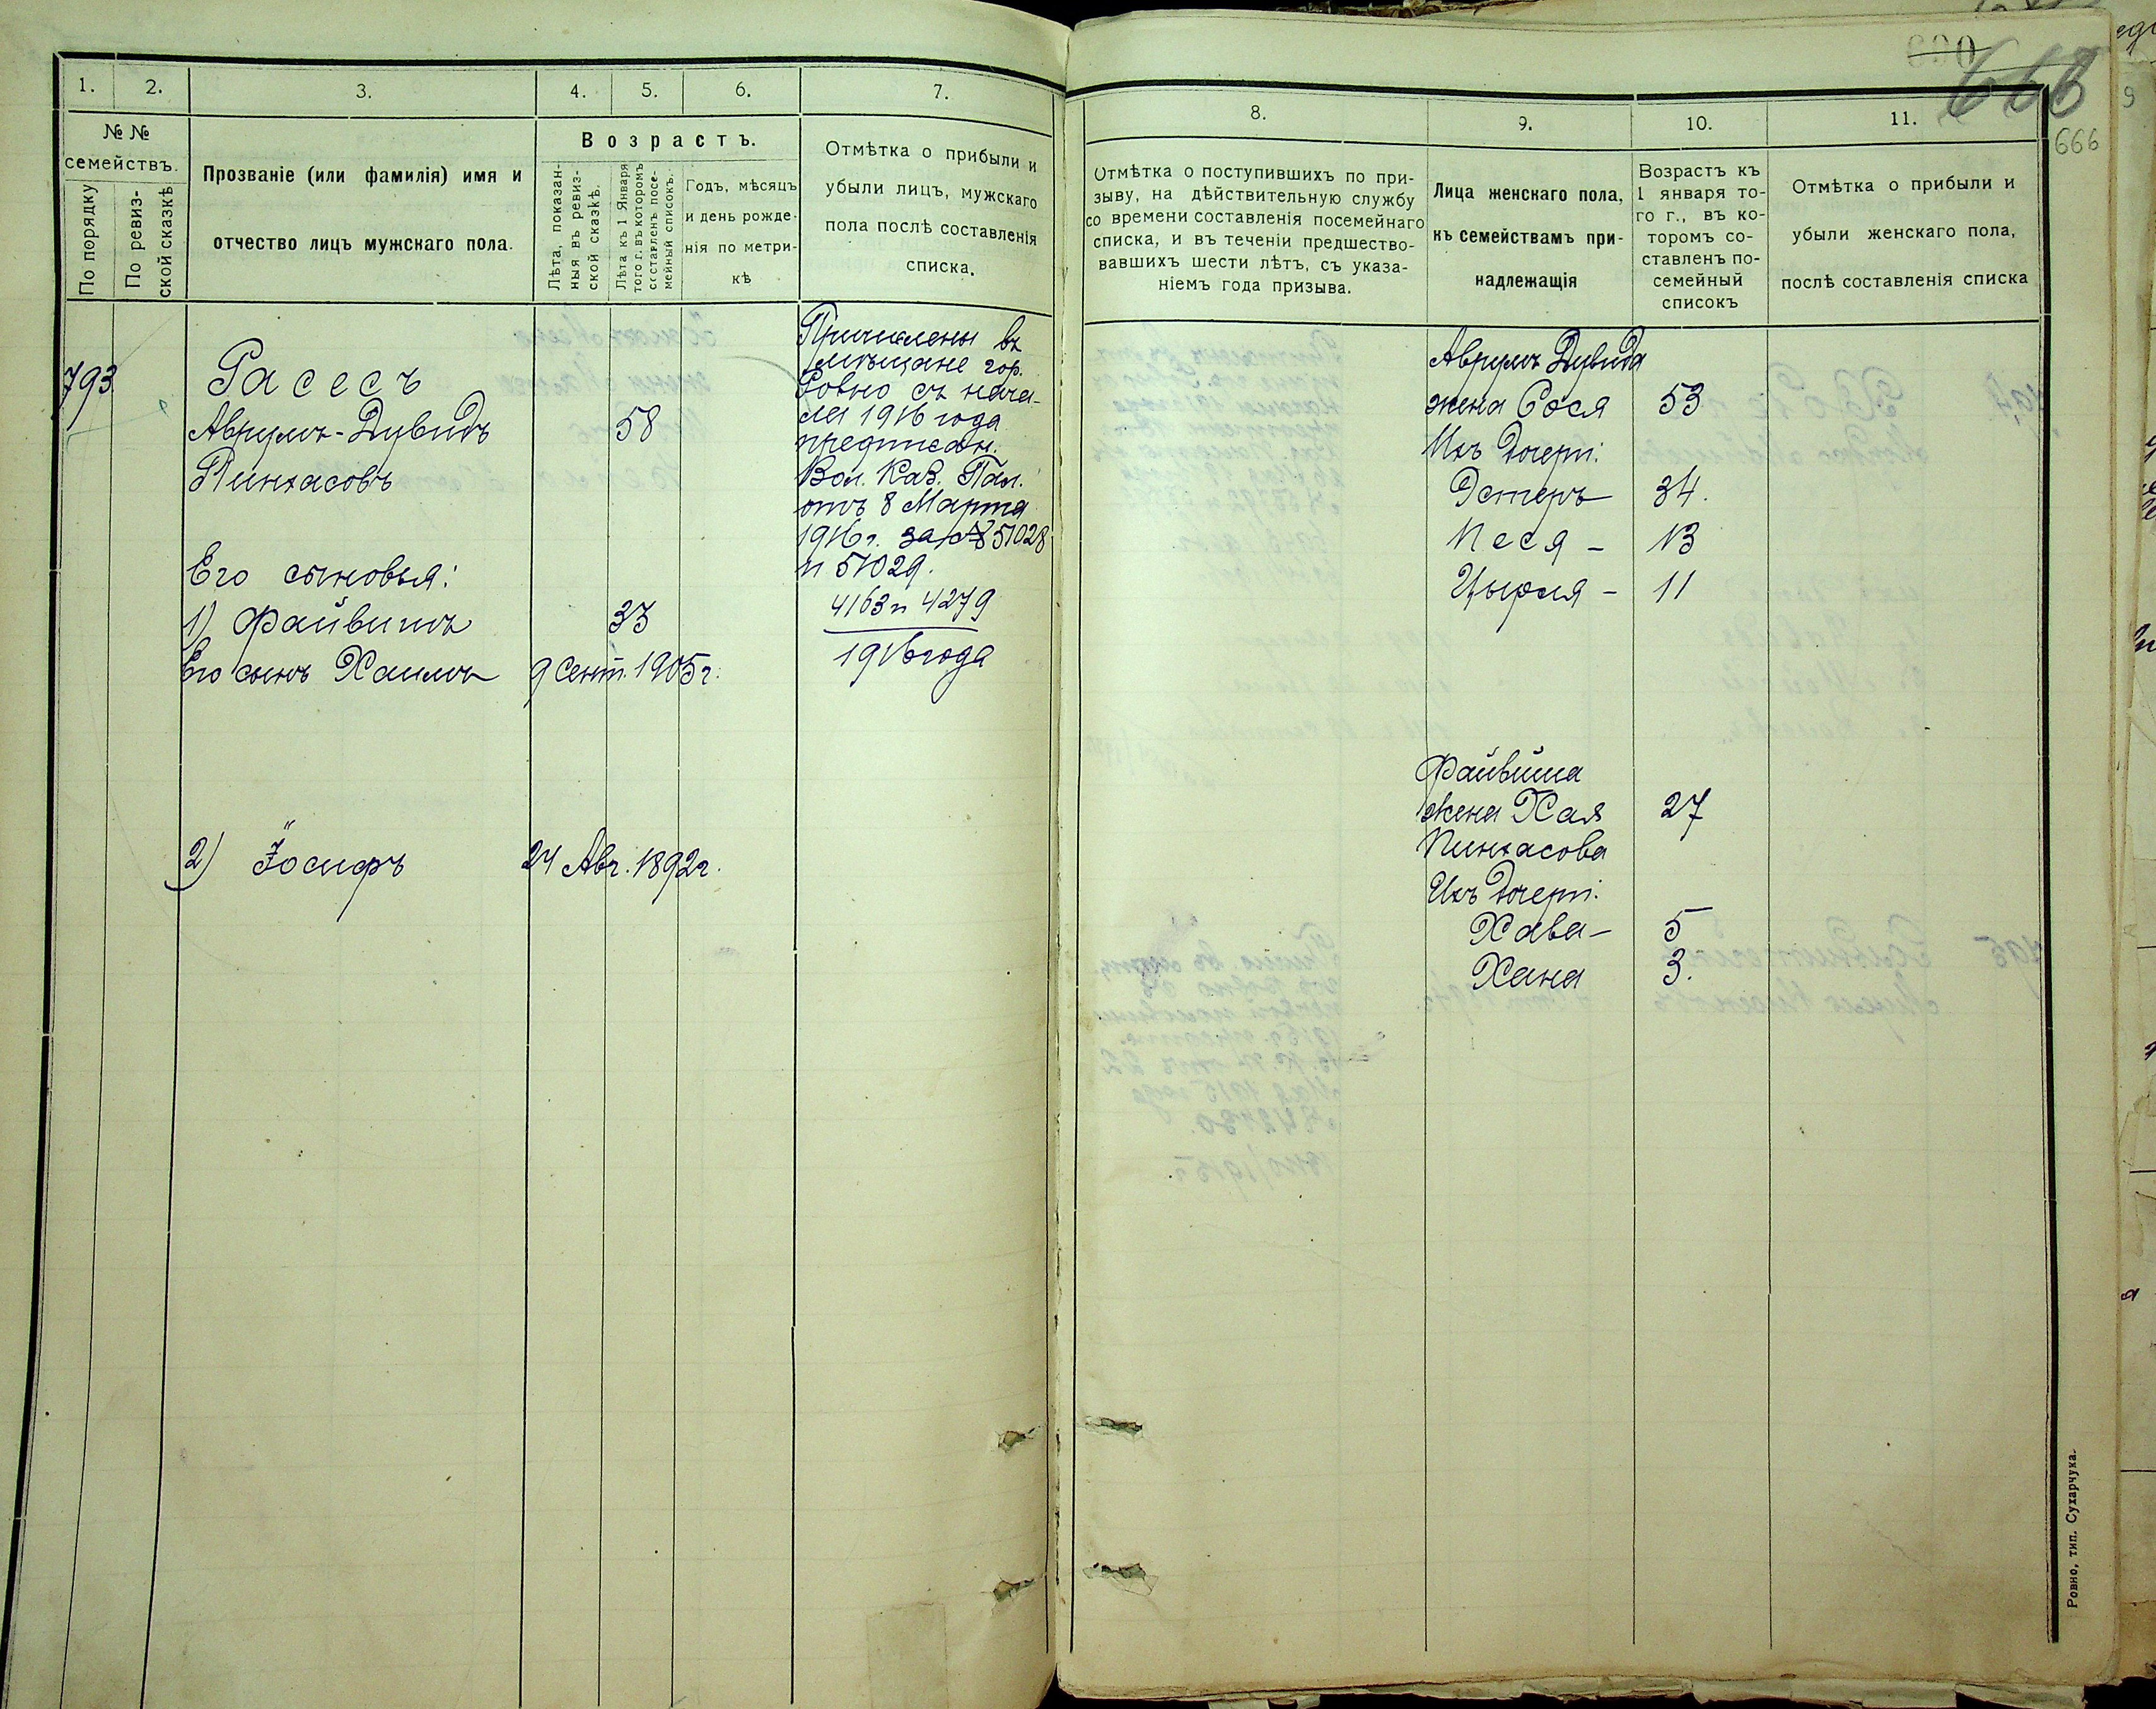 1. 2. 3. 4. 5. 6. 7.
№ №
семействъ.
По порядку
По ревиз-
ской сказкѣ
Прозваніе (или фамилія) имя и
отчество лицъ мужскаго пола.
Возрастъ.
Лѣта, показан-
ныя въ ревиз-
ской сказкѣ.
Лѣта къ 1 Января
того г. въ которомъ
составленъ посе-
мейный списокъ.
Годъ, мѣсяцъ
и день рожде-
нія по метри-
кѣ
Отмѣтка о прибыли и
убыли лицъ, мужскаго
пола послѣ составленія
списка.
793
Расесъ
Аврумъ-Дувидъ 58
Пинхасовъ
Его сыновья:
1) Файвишъ 33
Его сынъ Хаимъ 9 Сент. 1905 г.
2) Іосифъ 24 Авг. 1892 г.
Причислены въ
мѣщане гор.
Ровно съ нача-
ла 1916 года
предписан.
Вол. Каз. Пал.
отъ 8 Марта
1916 г. за № 51028
и 51029.
4163 и 4279
1916 года
690
668
666
8. 9. 10. 11.
Отмѣтка о поступившихъ по при-
зыву, на дѣйствительную службу
со времени составленія посемейнаго
списка, и въ теченіи предшество-
вавшихъ шести лѣтъ, съ указа-
ніемъ года призыва.
Лица женскаго пола,
къ семействамъ при-
надлежащія
Возрастъ къ
1 января то-
го г., въ ко-
торомъ со-
ставленъ по-
семейный
списокъ
Отмѣтка о прибыли и
убыли женскаго пола,
послѣ составленія списка
Аврума Дувида
жена Сося 53
Ихъ дочери:
Эстеръ 34.
Песя - 13
Цырля - 11
Файвиша
жена Хая 27
Пинхасова
Ихъ дочери:
Хава - 5
Хана 3.
Ровно, тип. Сухарчука.